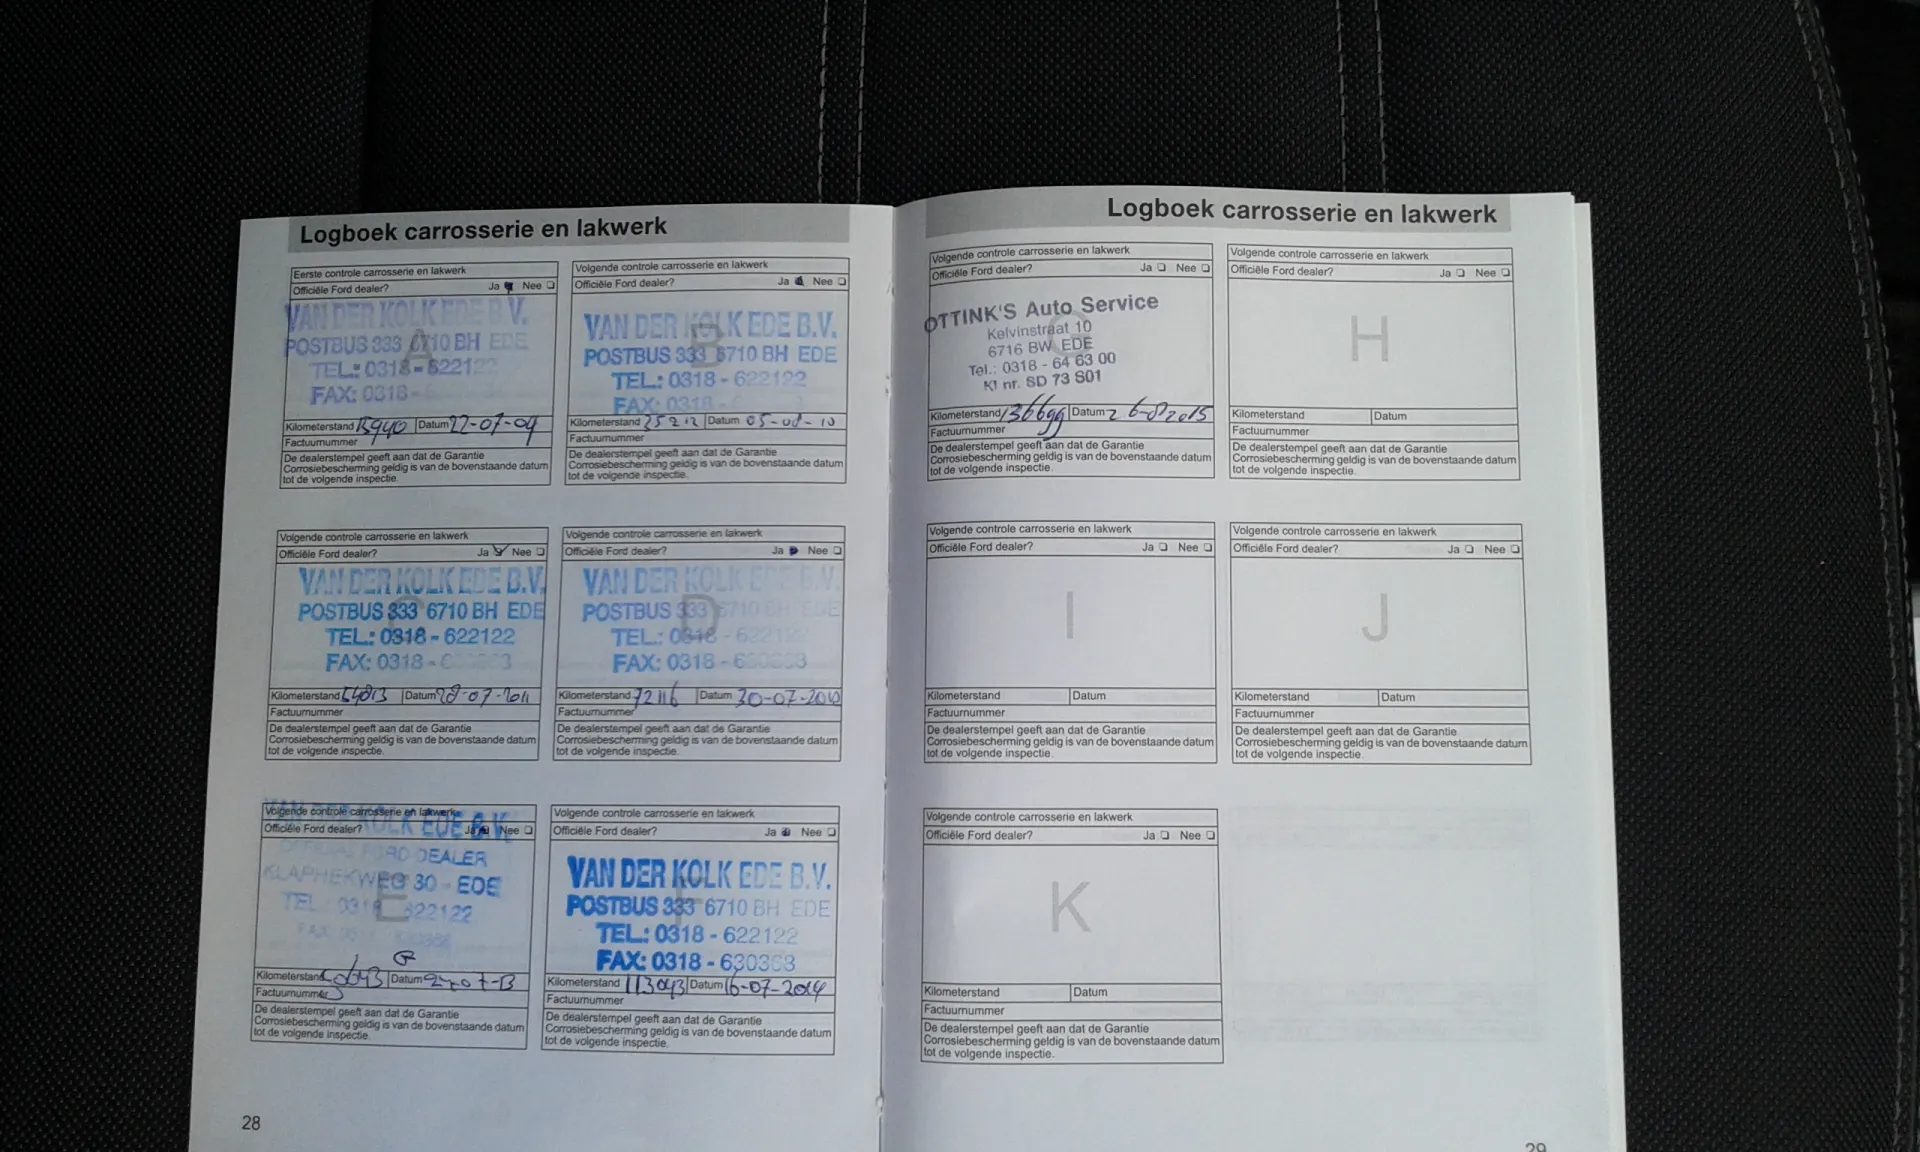 Logboek carrosserie en lakwerk
Eerste controle carrosserie en lakwerk
Officiële Ford dealer? Ja Nee
VAN DER KOLK EDE B.V.
POSTBUS 333 6710 BH EDE
TEL.: 0318 - 622122
FAX: 0318 -
A
Kilometerstand Datum 22-07-09
Factuurnummer
De dealerstempel geeft aan dat de Garantie
Corrosiebescherming geldig is van de bovenstaande datum
tot de volgende inspectie.
Volgende controle carrosserie en lakwerk
Officiële Ford dealer? Ja Nee
VAN DER KOLK EDE B.V.
POSTBUS 333 6710 BH EDE
TEL.: 0318 - 622122
FAX: 0318 -
B
Kilometerstand 35212 Datum 05-08-10
Factuurnummer
De dealerstempel geeft aan dat de Garantie
Corrosiebescherming geldig is van de bovenstaande datum
tot de volgende inspectie.
Volgende controle carrosserie en lakwerk
Officiële Ford dealer? Ja Nee
VAN DER KOLK EDE B.V.
POSTBUS 333 6710 BH EDE
TEL.: 0318 - 622122
FAX: 0318 -
C
Kilometerstand 54013 Datum 28-07-2011
Factuurnummer
De dealerstempel geeft aan dat de Garantie
Corrosiebescherming geldig is van de bovenstaande datum
tot de volgende inspectie.
Volgende controle carrosserie en lakwerk
Officiële Ford dealer? Ja Nee
VAN DER KOLK EDE B.V.
POSTBUS 333 6710 BH EDE
TEL.: 0318 - 622122
FAX: 0318 - 630363
D
Kilometerstand 72116 Datum 30-07-2012
Factuurnummer
De dealerstempel geeft aan dat de Garantie
Corrosiebescherming geldig is van de bovenstaande datum
tot de volgende inspectie.
Volgende controle carrosserie en lakwerk
Officiële Ford dealer? Ja Nee
VAN DER KOLK EDE B.V.
OFFICIAL FORD DEALER
KLAPHEKWEG 30 - EDE
TEL. 0318 622122
FAX
E
Kilometerstand Datum
Factuurnummer
De dealerstempel geeft aan dat de Garantie
Corrosiebescherming geldig is van de bovenstaande datum
tot de volgende inspectie.
Volgende controle carrosserie en lakwerk
Officiële Ford dealer? Ja Nee
VAN DER KOLK EDE B.V.
POSTBUS 333 6710 BH EDE
TEL.: 0318 - 622122
FAX: 0318 - 630363
F
Kilometerstand 113043 Datum 16-07-2014
Factuurnummer
De dealerstempel geeft aan dat de Garantie
Corrosiebescherming geldig is van de bovenstaande datum
tot de volgende inspectie.
28
Logboek carrosserie en lakwerk
Volgende controle carrosserie en lakwerk
Officiële Ford dealer? Ja Nee
OTTINK'S Auto Service
Kelvinstraat 10
6716 BW EDE
Tel.: 0318 - 64 63 00
KI nr. SD 73 S01
G
Kilometerstand 136699 Datum 26-08-2015
Factuurnummer
De dealerstempel geeft aan dat de Garantie
Corrosiebescherming geldig is van de bovenstaande datum
tot de volgende inspectie.
Volgende controle carrosserie en lakwerk
Officiële Ford dealer? Ja Nee
H
Kilometerstand Datum
Factuurnummer
De dealerstempel geeft aan dat de Garantie
Corrosiebescherming geldig is van de bovenstaande datum
tot de volgende inspectie.
Volgende controle carrosserie en lakwerk
Officiële Ford dealer? Ja Nee
I
Kilometerstand Datum
Factuurnummer
De dealerstempel geeft aan dat de Garantie
Corrosiebescherming geldig is van de bovenstaande datum
tot de volgende inspectie.
Volgende controle carrosserie en lakwerk
Officiële Ford dealer? Ja Nee
J
Kilometerstand Datum
Factuurnummer
De dealerstempel geeft aan dat de Garantie
Corrosiebescherming geldig is van de bovenstaande datum
tot de volgende inspectie.
Volgende controle carrosserie en lakwerk
Officiële Ford dealer? Ja Nee
K
Kilometerstand Datum
Factuurnummer
De dealerstempel geeft aan dat de Garantie
Corrosiebescherming geldig is van de bovenstaande datum
tot de volgende inspectie.
29